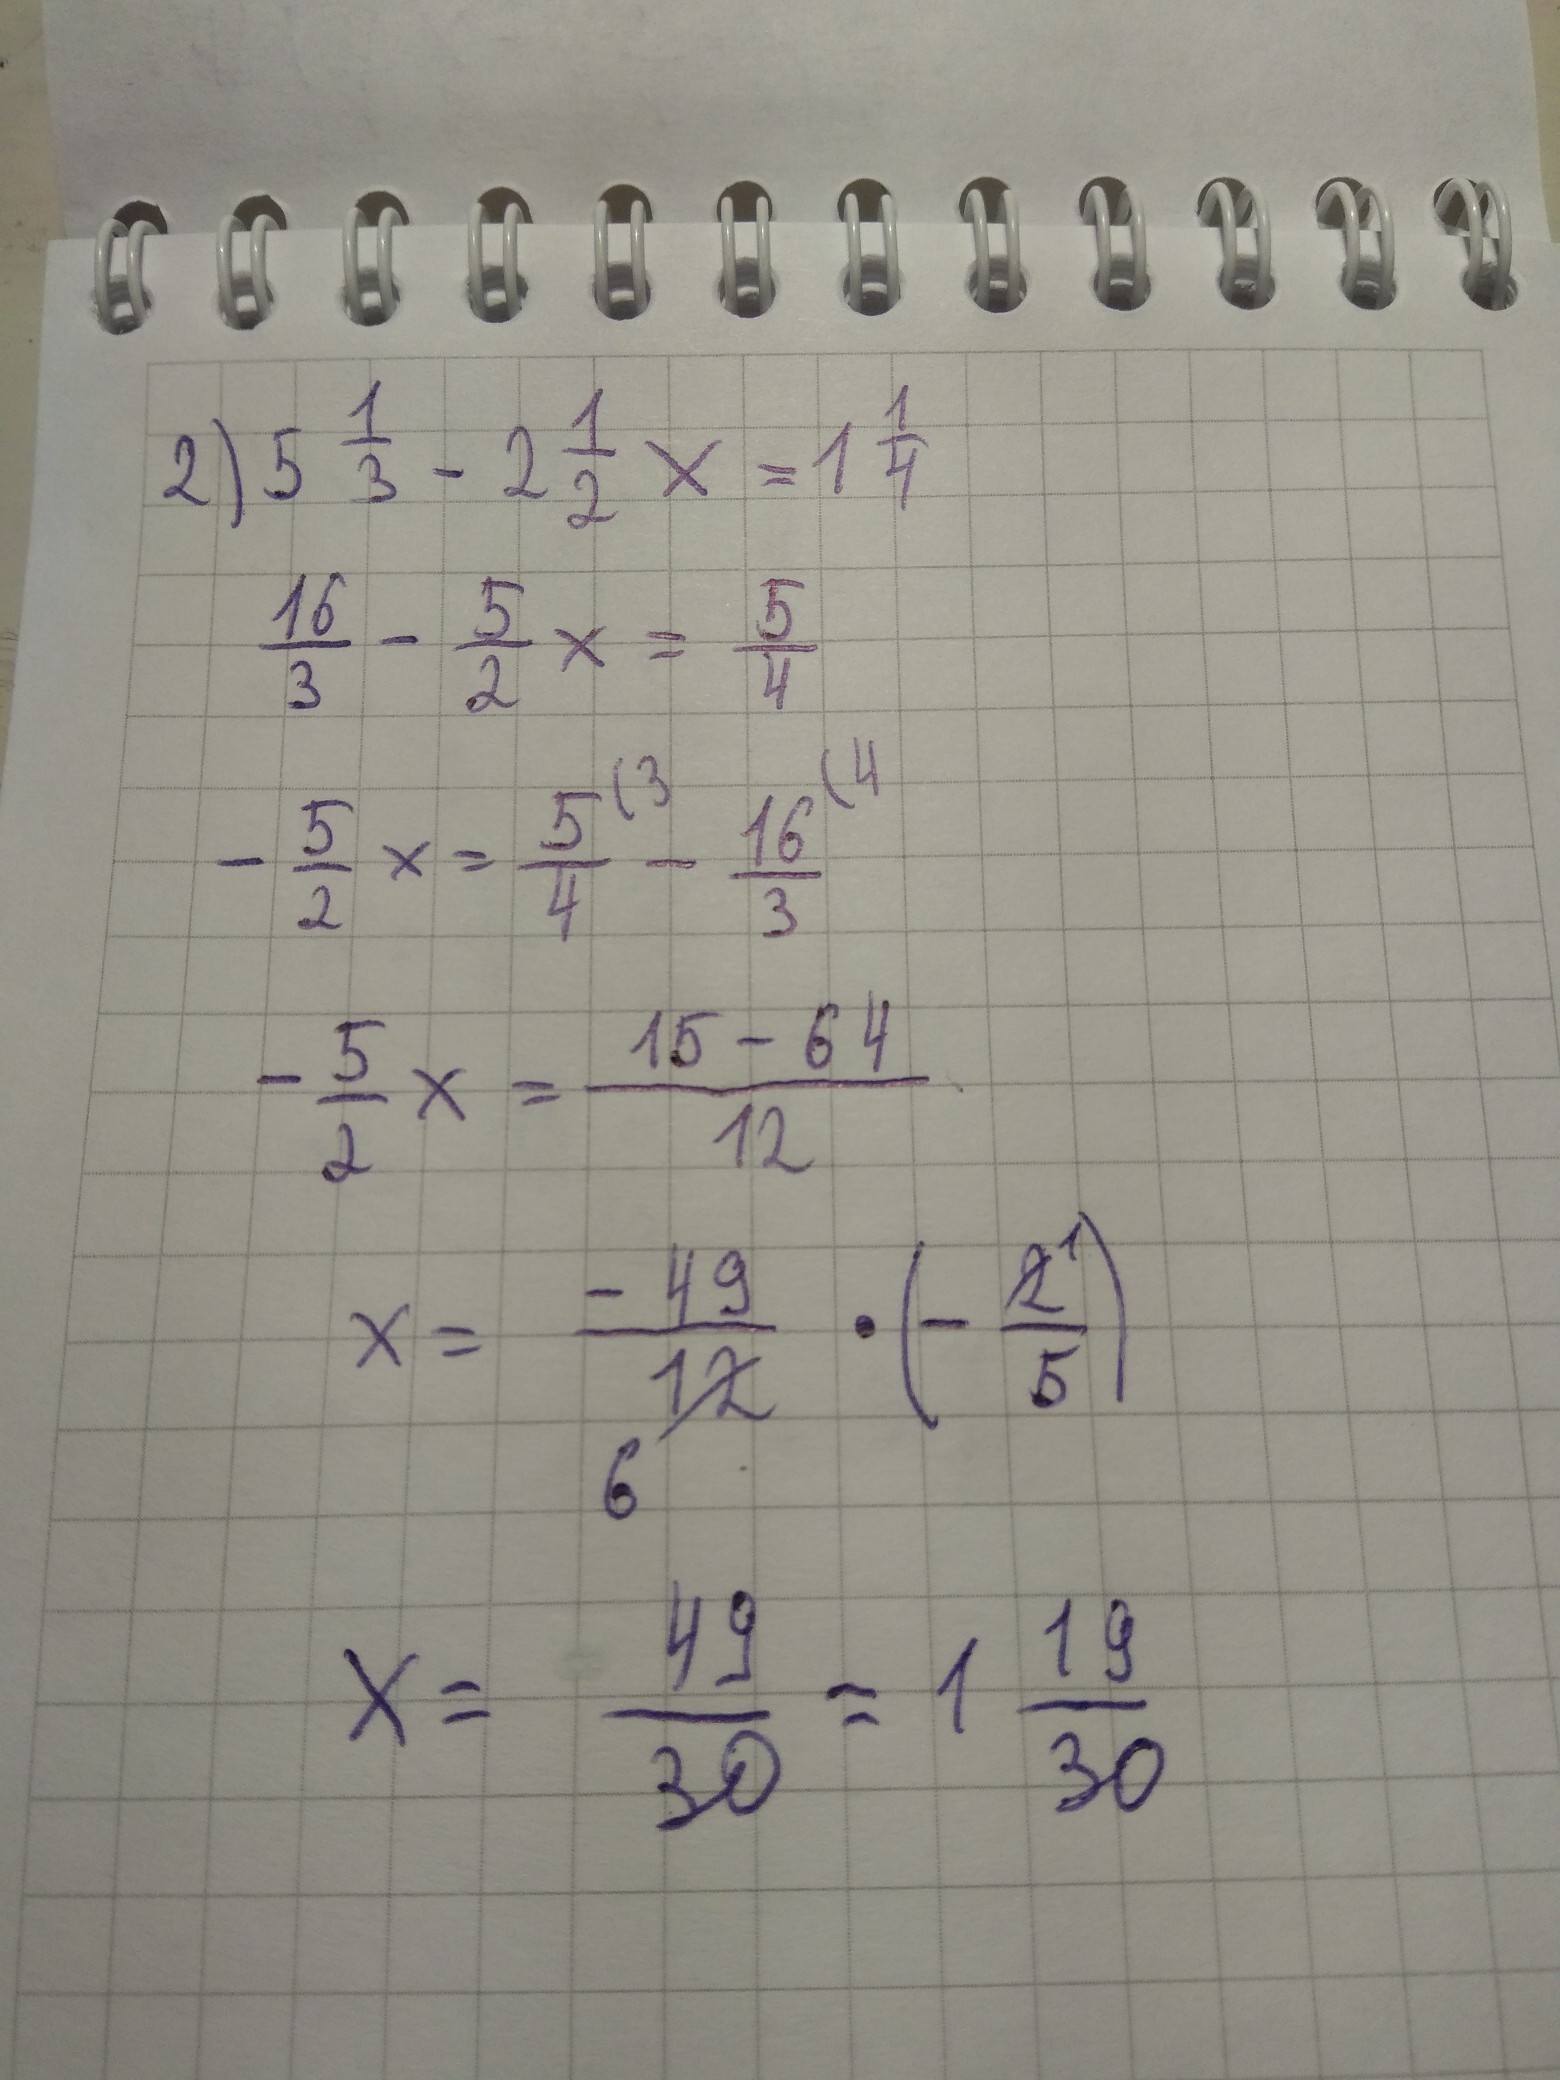 2) 5 1/3 - 2 1/2 x = 1 1/4
16/3 - 5/2 x = 5/4
- 5/2 x = 5/4 (3 - 16/3 (4
- 5/2 x = 15 - 64 / 12
x = - 49 / 12 6 · (- 2 1 / 5)
x = 49/30 = 1 19/30